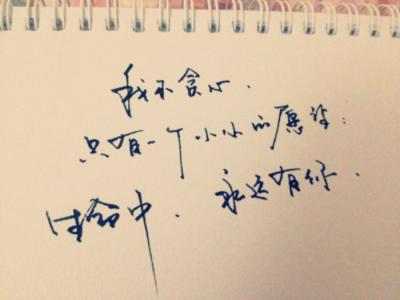 我不贪心.
只有一个小小的愿望:
生命中. 永远有你.